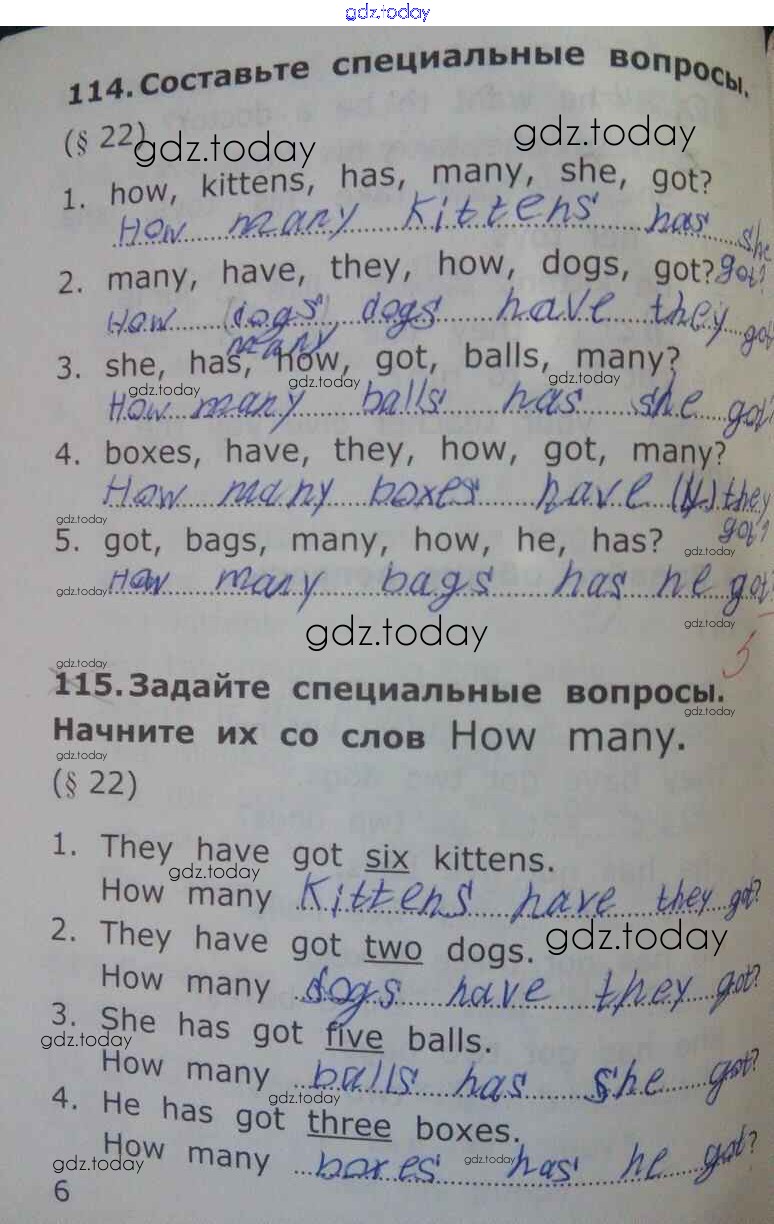 gdz.today
114. Составьте специальные вопросы.
(§ 22)
gdz.today
gdz.today
1. how, kittens, has, many, she, got?
How many kittens has she
got?
2. many, have, they, how, dogs, got?
How (dogs) dogs have they got
many
3. she, has, how, got, balls, many?
gdz.today
gdz.today
gdz.today
How many balls has she got?
4. boxes, have, they, how, got, many?
How many boxes have they
got?
gdz.today
5. got, bags, many, how, he, has?
gdz.today
How many bags has he got?
gdz.today
gdz.today
gdz.today
5
gdz.today
115. Задайте специальные вопросы.
gdz.today
Начните их со слов How many.
gdz.today
(§ 22)
1. They have got six kittens.
gdz.today
How many kittens have they got?
2. They have got two dogs.
gdz.today
How many dogs have they got?
3. She has got five balls.
gdz.today
How many balls has she got?
4. He has got three boxes.
gdz.today
How many boxes has he got?
gdz.today
gdz.today
6